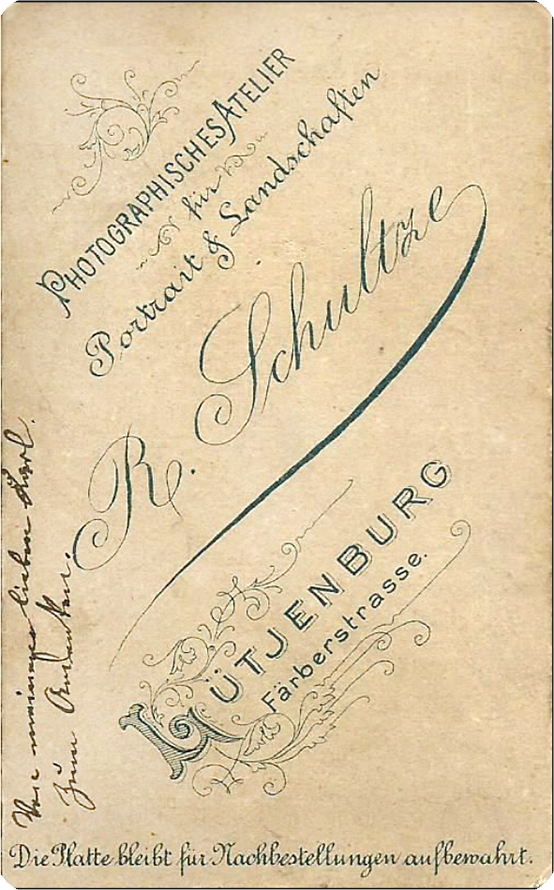 PHOTOGRAPHISCHES ATELIER
für
Portrait & Landschaften
R. Schultze
LÜTJENBURG
Färberstrasse.
Von meinem lieben Karl.
Zum Andenken.
Die Platte bleibt für Nachbestellungen aufbewahrt.